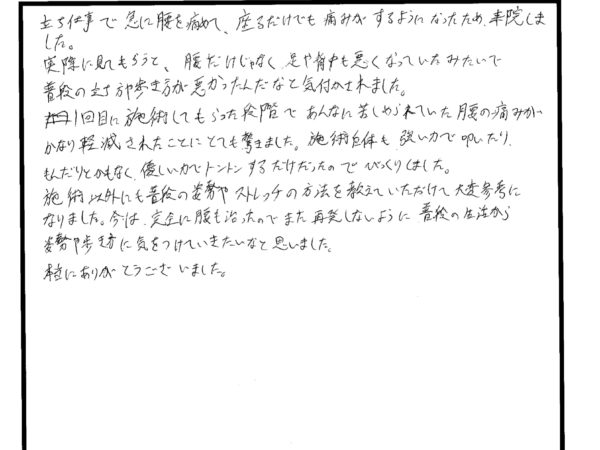 立ち仕事で急に腰を痛めて、座るだけでも痛みがするようになったため、来院しま
した。
実際に見てもらうと、腰だけじゃなく足や背中も悪くなっていたみたいで
普段の立ち方や歩き方が悪かったんだなと気付かされました。
1回目に施術してもらった段階であんなに苦しめられていた腰の痛みが
かなり軽減されたことにとても驚きました。施術自体も強い力で叩いたり、
もんだりとかもなく、優しい力でトントンするだけだったのでびっくりしました。
施術以外にも普段の姿勢やストレッチの方法を教えていただけて大変参考に
なりました。今は、完全に腰も治ったのでまた再発しないように普段の生活から
姿勢や歩き方に気をつけていきたいなと思いました。
本当にありがとうございました。